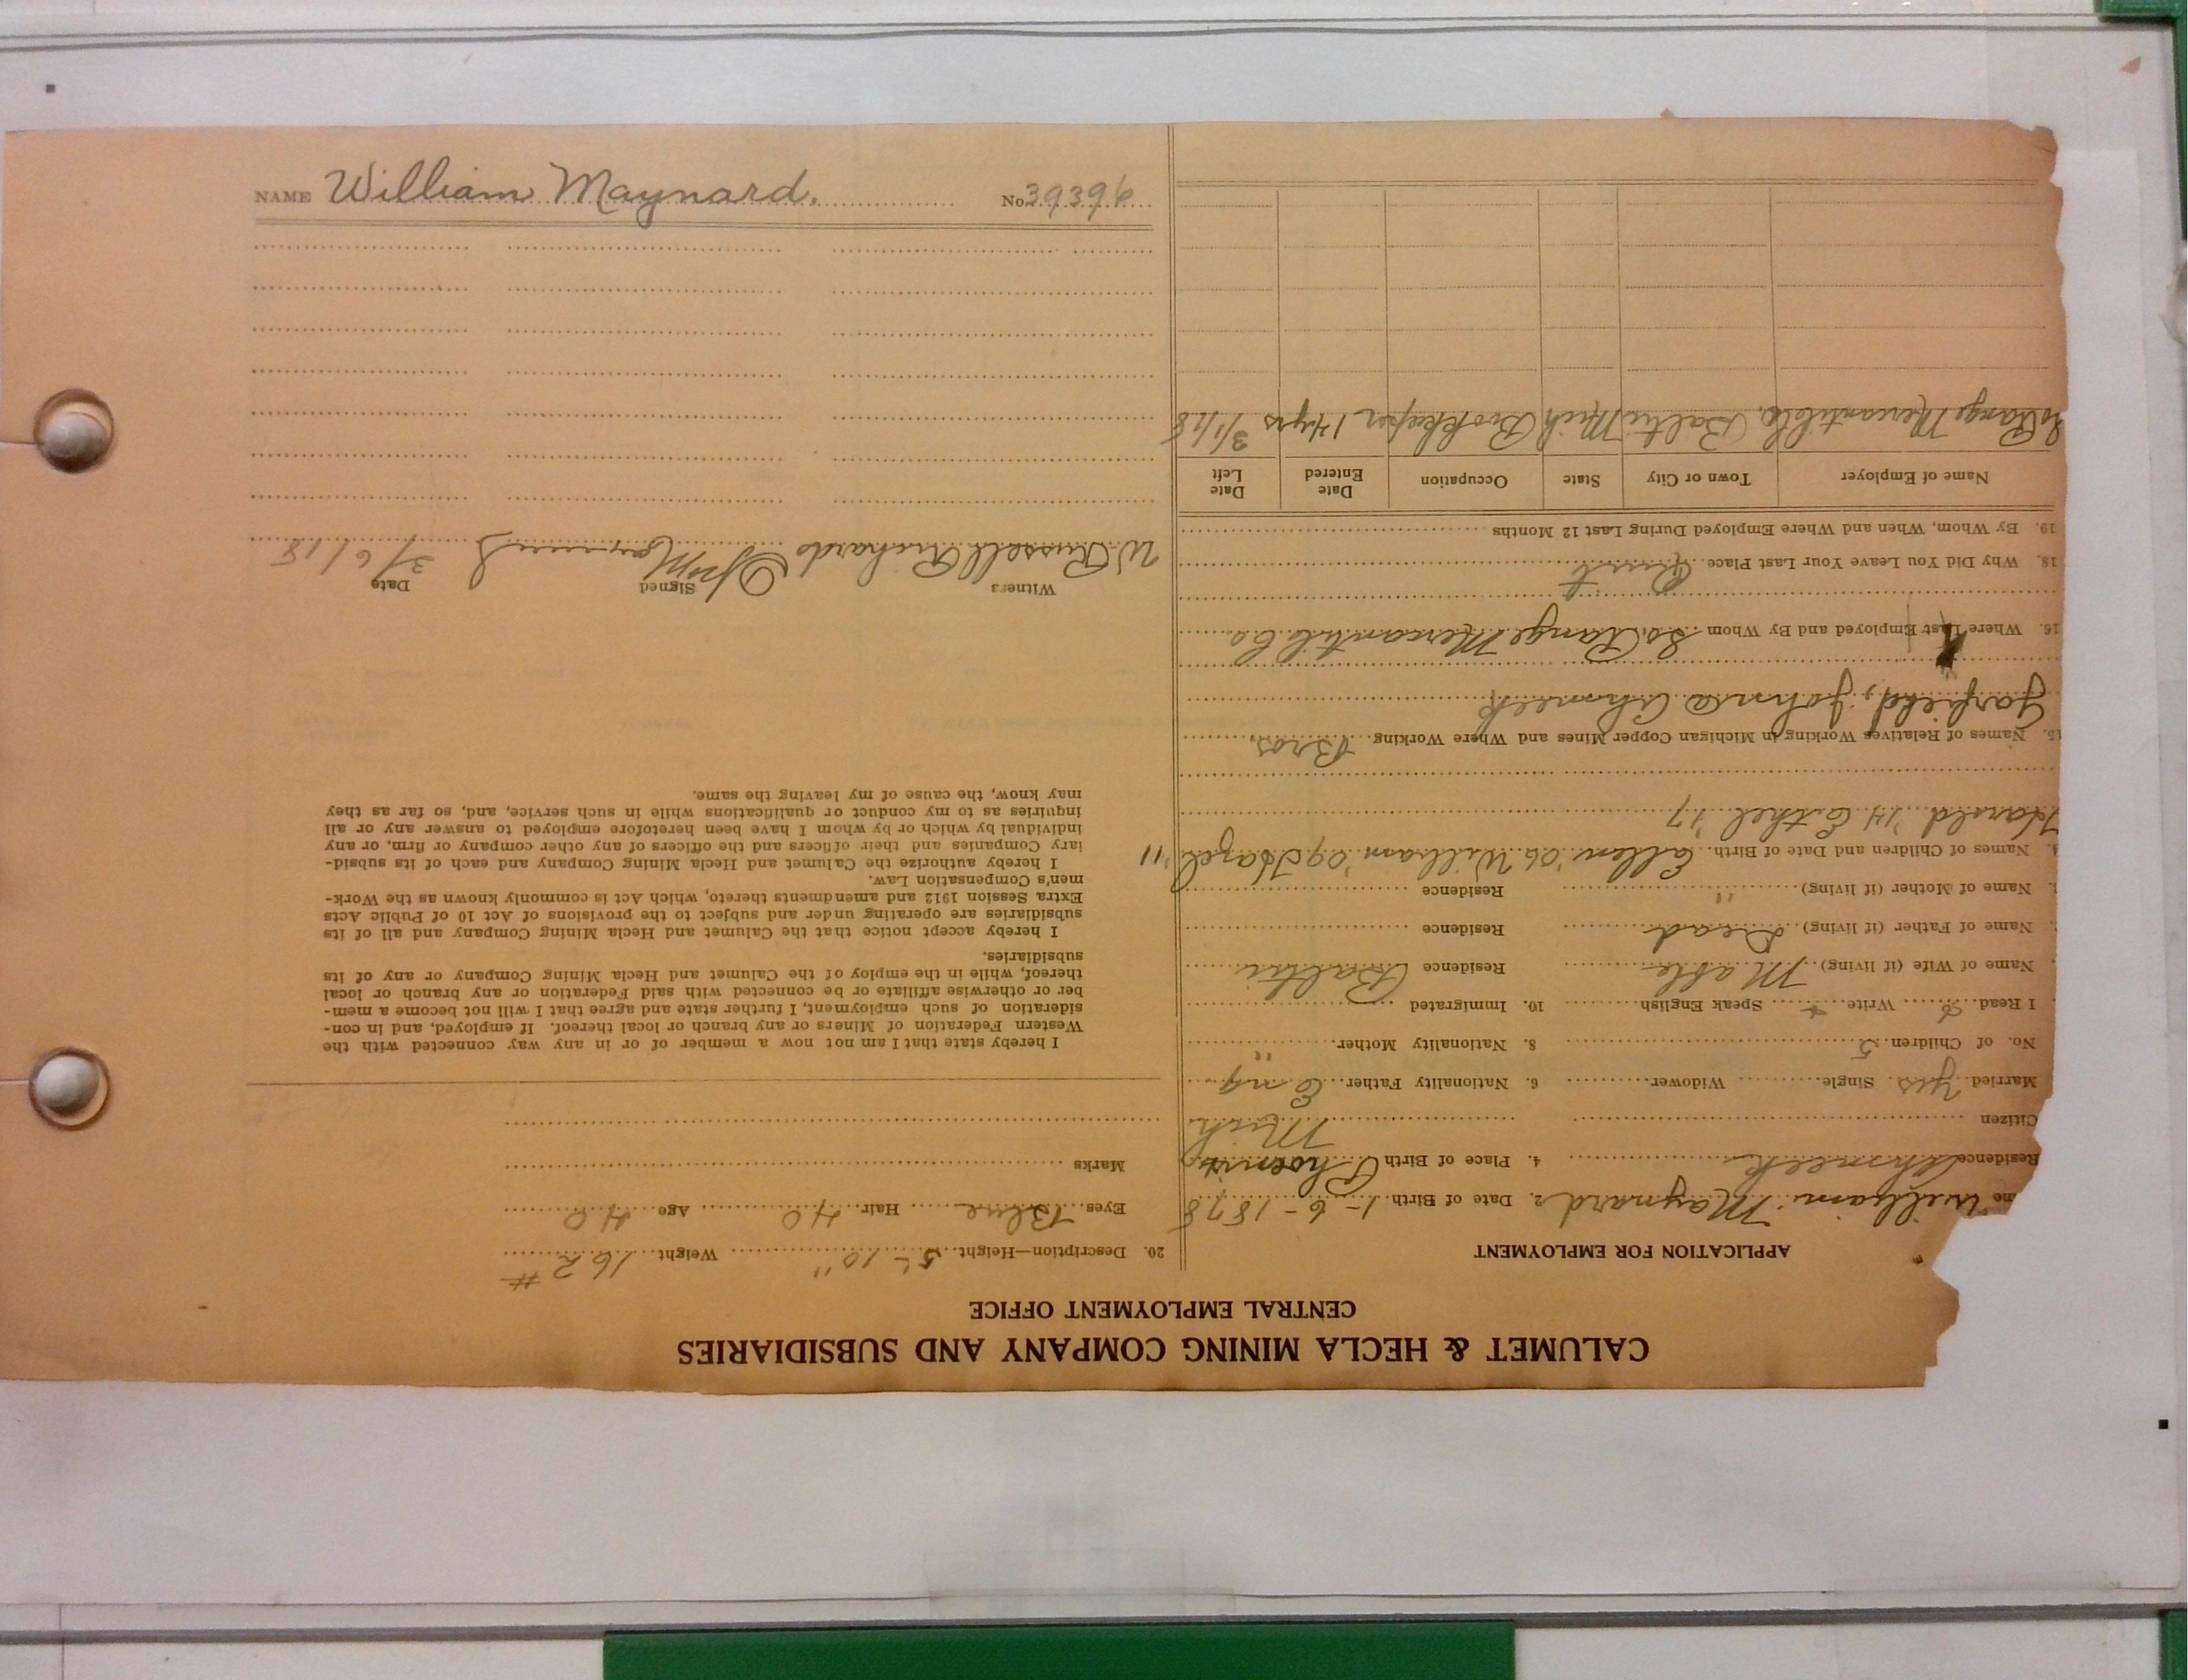 CALUMET & HECLA MINING COMPANY AND SUBSIDIARIES
CENTRAL EMPLOYMENT OFFICE
APPLICATION FOR EMPLOYMENT
me William Maynard 2. Date of Birth 1-6-1878
Residence Ahmeek 4. Place of Birth Phoenix
Mich
Citizen
Married yes Single Widower 6. Nationality Father Eng
No. of Children 5 8. Nationality Mother "
I Read Write Speak English 10. Immigrated
Name of Wife (if living) Mable Residence Baltic
Name of Father (if living) Dead Residence
Name of Mother (if living) " Residence
4. Names of Children and Date of Birth Ellen '06 William '09 Hazel '11
Harold '14 Ethel '17
15. Names of Relatives Working in Michigan Copper Mines and Where Working Bros.
Garfield, John @ Ahmeek
16. Where Last Employed and By Whom So. Range Mercantile Co.
18. Why Did You Leave Your Last Place Quit
19. By Whom, When and Where Employed During Last 12 Months
Name of Employer Town or City State Occupation Date Entered Date Left
So Range Mercantile Co. Baltic Mich Bookkeeper 14 yrs 3/1/18
20. Description—Height 5'-10" Weight 162 #
Eyes Blue Hair Age 40
Marks
I hereby state that I am not now a member of or in any way connected with the
Western Federation of Miners or any branch or local thereof. If employed, and in con-
sideration of such employment, I further state and agree that I will not become a mem-
ber or otherwise affiliate or be connected with said Federation or any branch or local
thereof, while in the employ of the Calumet and Hecla Mining Company or any of its
subsidiaries.
I hereby accept notice that the Calumet and Hecla Mining Company and all of its
subsidiaries are operating under and subject to the provisions of Act 10 of Public Acts
Extra Session 1912 and amendments thereto, which Act is commonly known as the Work-
men's Compensation Law.
I hereby authorize the Calumet and Hecla Mining Company and each of its subsid-
iary Companies and their officers and the officers of any other company or firm, or any
individual by which or by whom I have been heretofore employed to answer any or all
inquiries as to my conduct or qualifications while in such service, and, so far as they
may know, the cause of my leaving the same.
Witness Signed Date
W Russell Richards Wm Maynard 3/6/18
NAME William Maynard. No. 39396